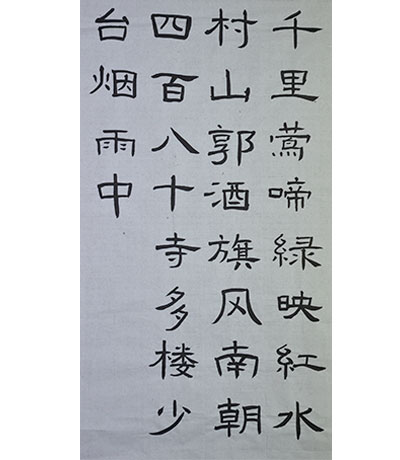 千里莺啼緑映紅水
村山郭酒旗风南朝
四百八十寺多楼少
台烟雨中